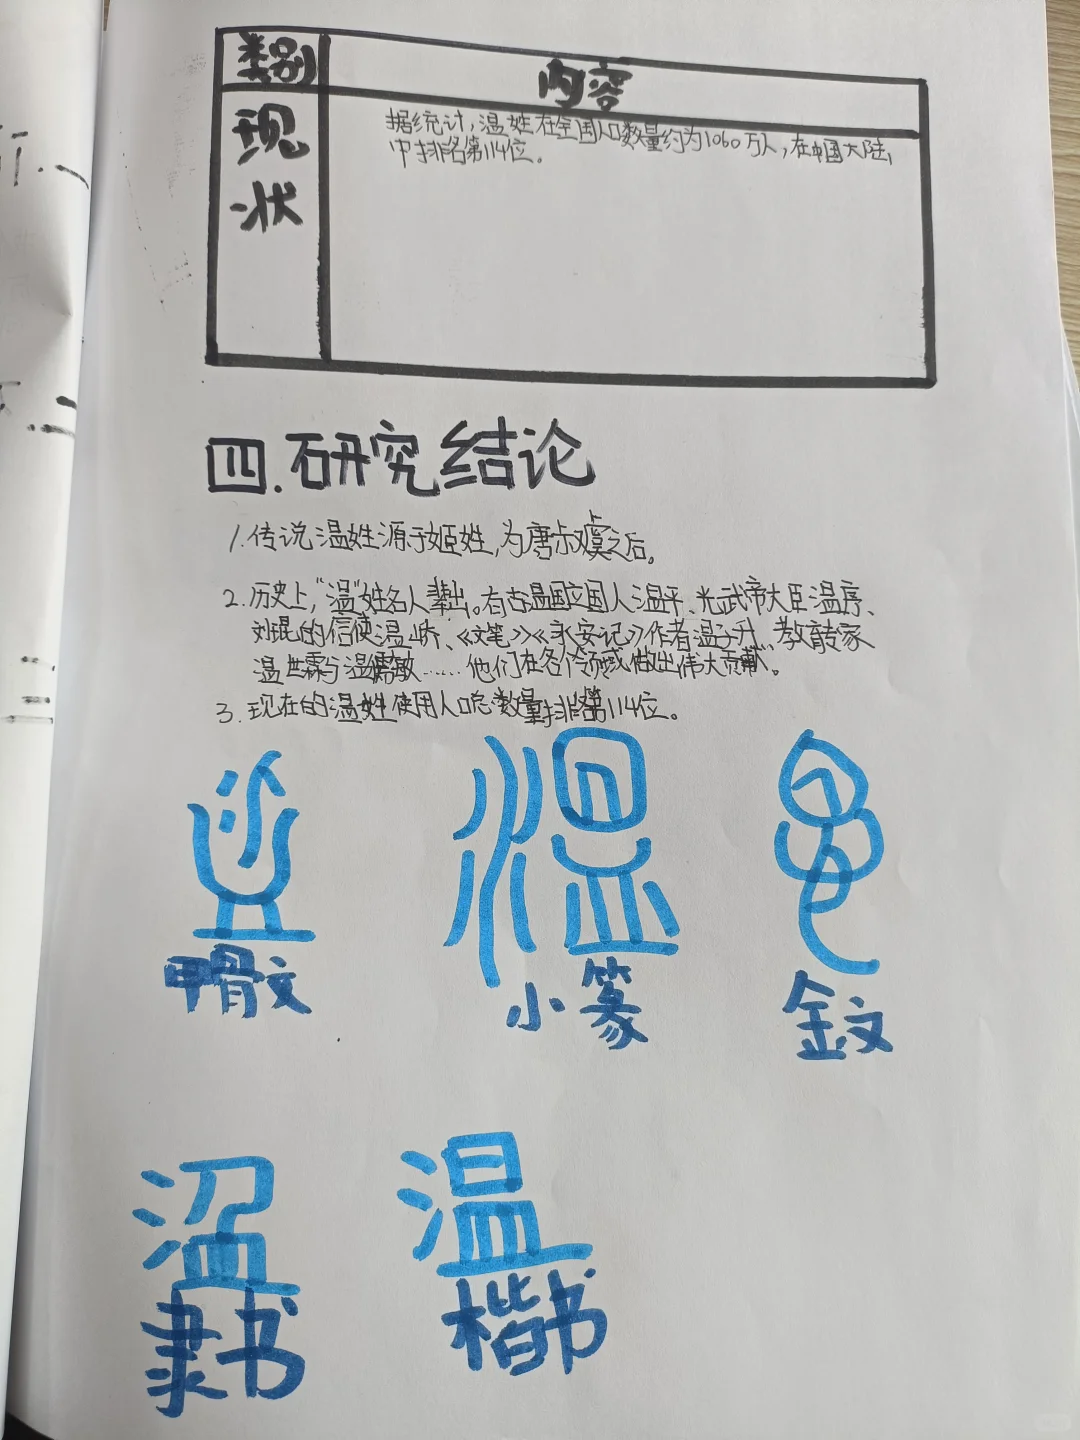 类别
内容
现状
据统计,温姓在全国人口数量约为1060万人,在中国大陆,
中排名第114位。
四.研究结论
1.传说温姓源于姬姓,为唐叔虞之后。
2.历史上,“温”姓名人辈出。有古温国立国人温平、光武帝大臣温序、
刘琨的信使温峤、《文笔》《永安记》作者温子升、教育专家
温世霖与温儒敏……他们在各个领域做出伟大贡献。
3.现在的温姓使用人口总数量排名第114位。
甲骨文
温
小篆
金文
温
隶书
温
楷书